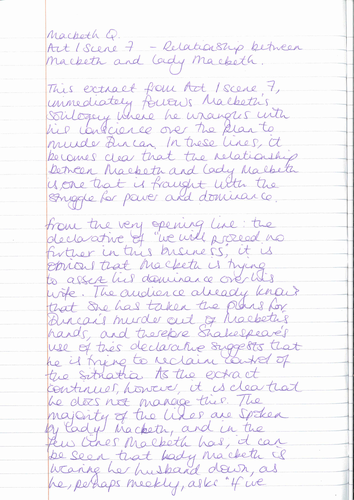 Macbeth Q.
Act 1 Scene 7 - Relationship between
Macbeth and Lady Macbeth.
This extract from Act 1 Scene 7,
immediately follows Macbeth's
soliloquy where he wrangles with
his conscience over the plan to
murder Duncan. In these lines, it
becomes clear that the relationship
between Macbeth and Lady Macbeth
is one that is fraught with the
struggle for power and dominance.
From the very opening line: the
declarative of "we will proceed no
further in this business", it is
obvious that Macbeth is trying
to assert his dominance over his
wife. The audience already knows
that she has taken the plans for
Duncan's murder out of Macbeth's
hands, and therefore Shakespeare's
use of this declarative suggests that
he is trying to reclaim control of
the situation. As the extract
continues, however, it is clear that
he does not manage this. The
majority of the lines are spoken
by Lady Macbeth, and in the
few lines Macbeth has, it can
be seen that Lady Macbeth is
wearing her husband down, as
he, perhaps meekly, asks "If we